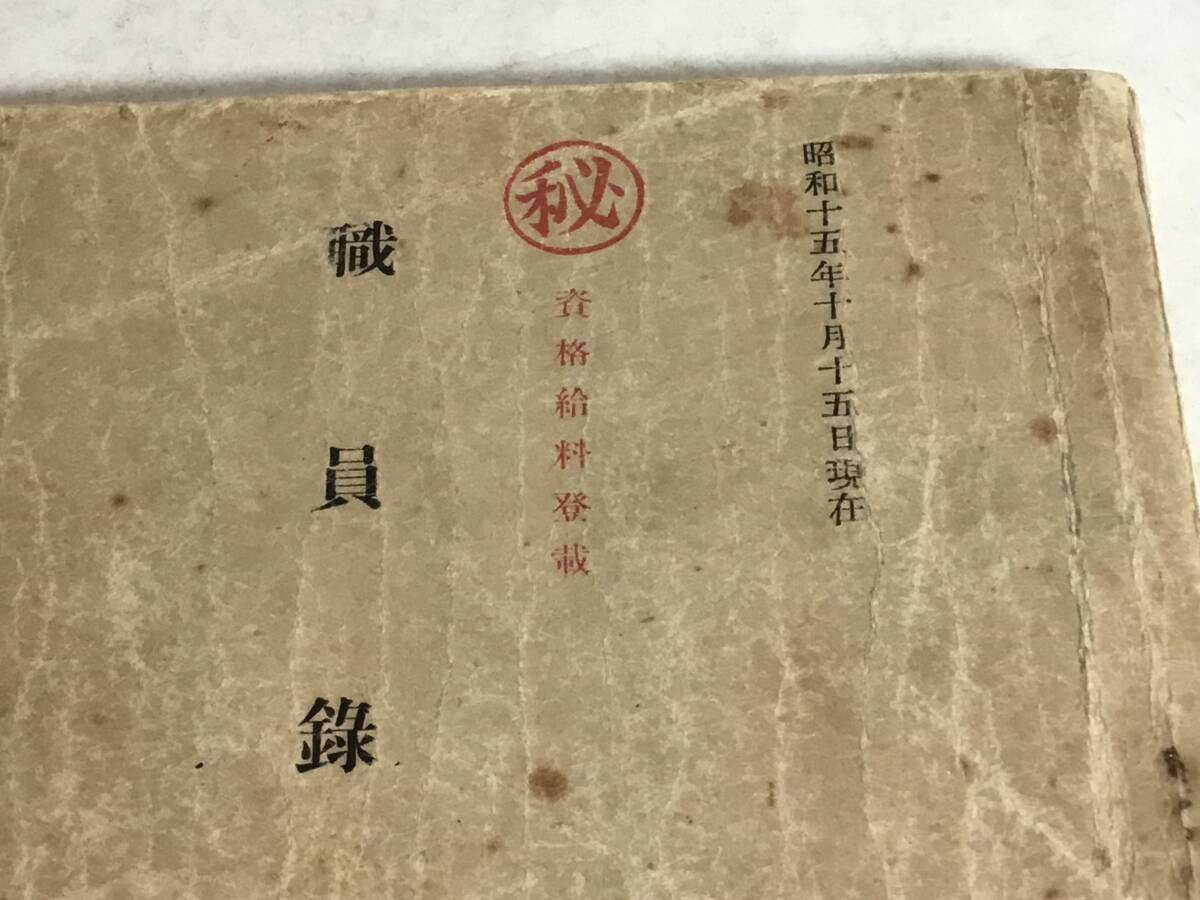 昭和十五年十月十五日現在
秘
資格給料登載
職員錄